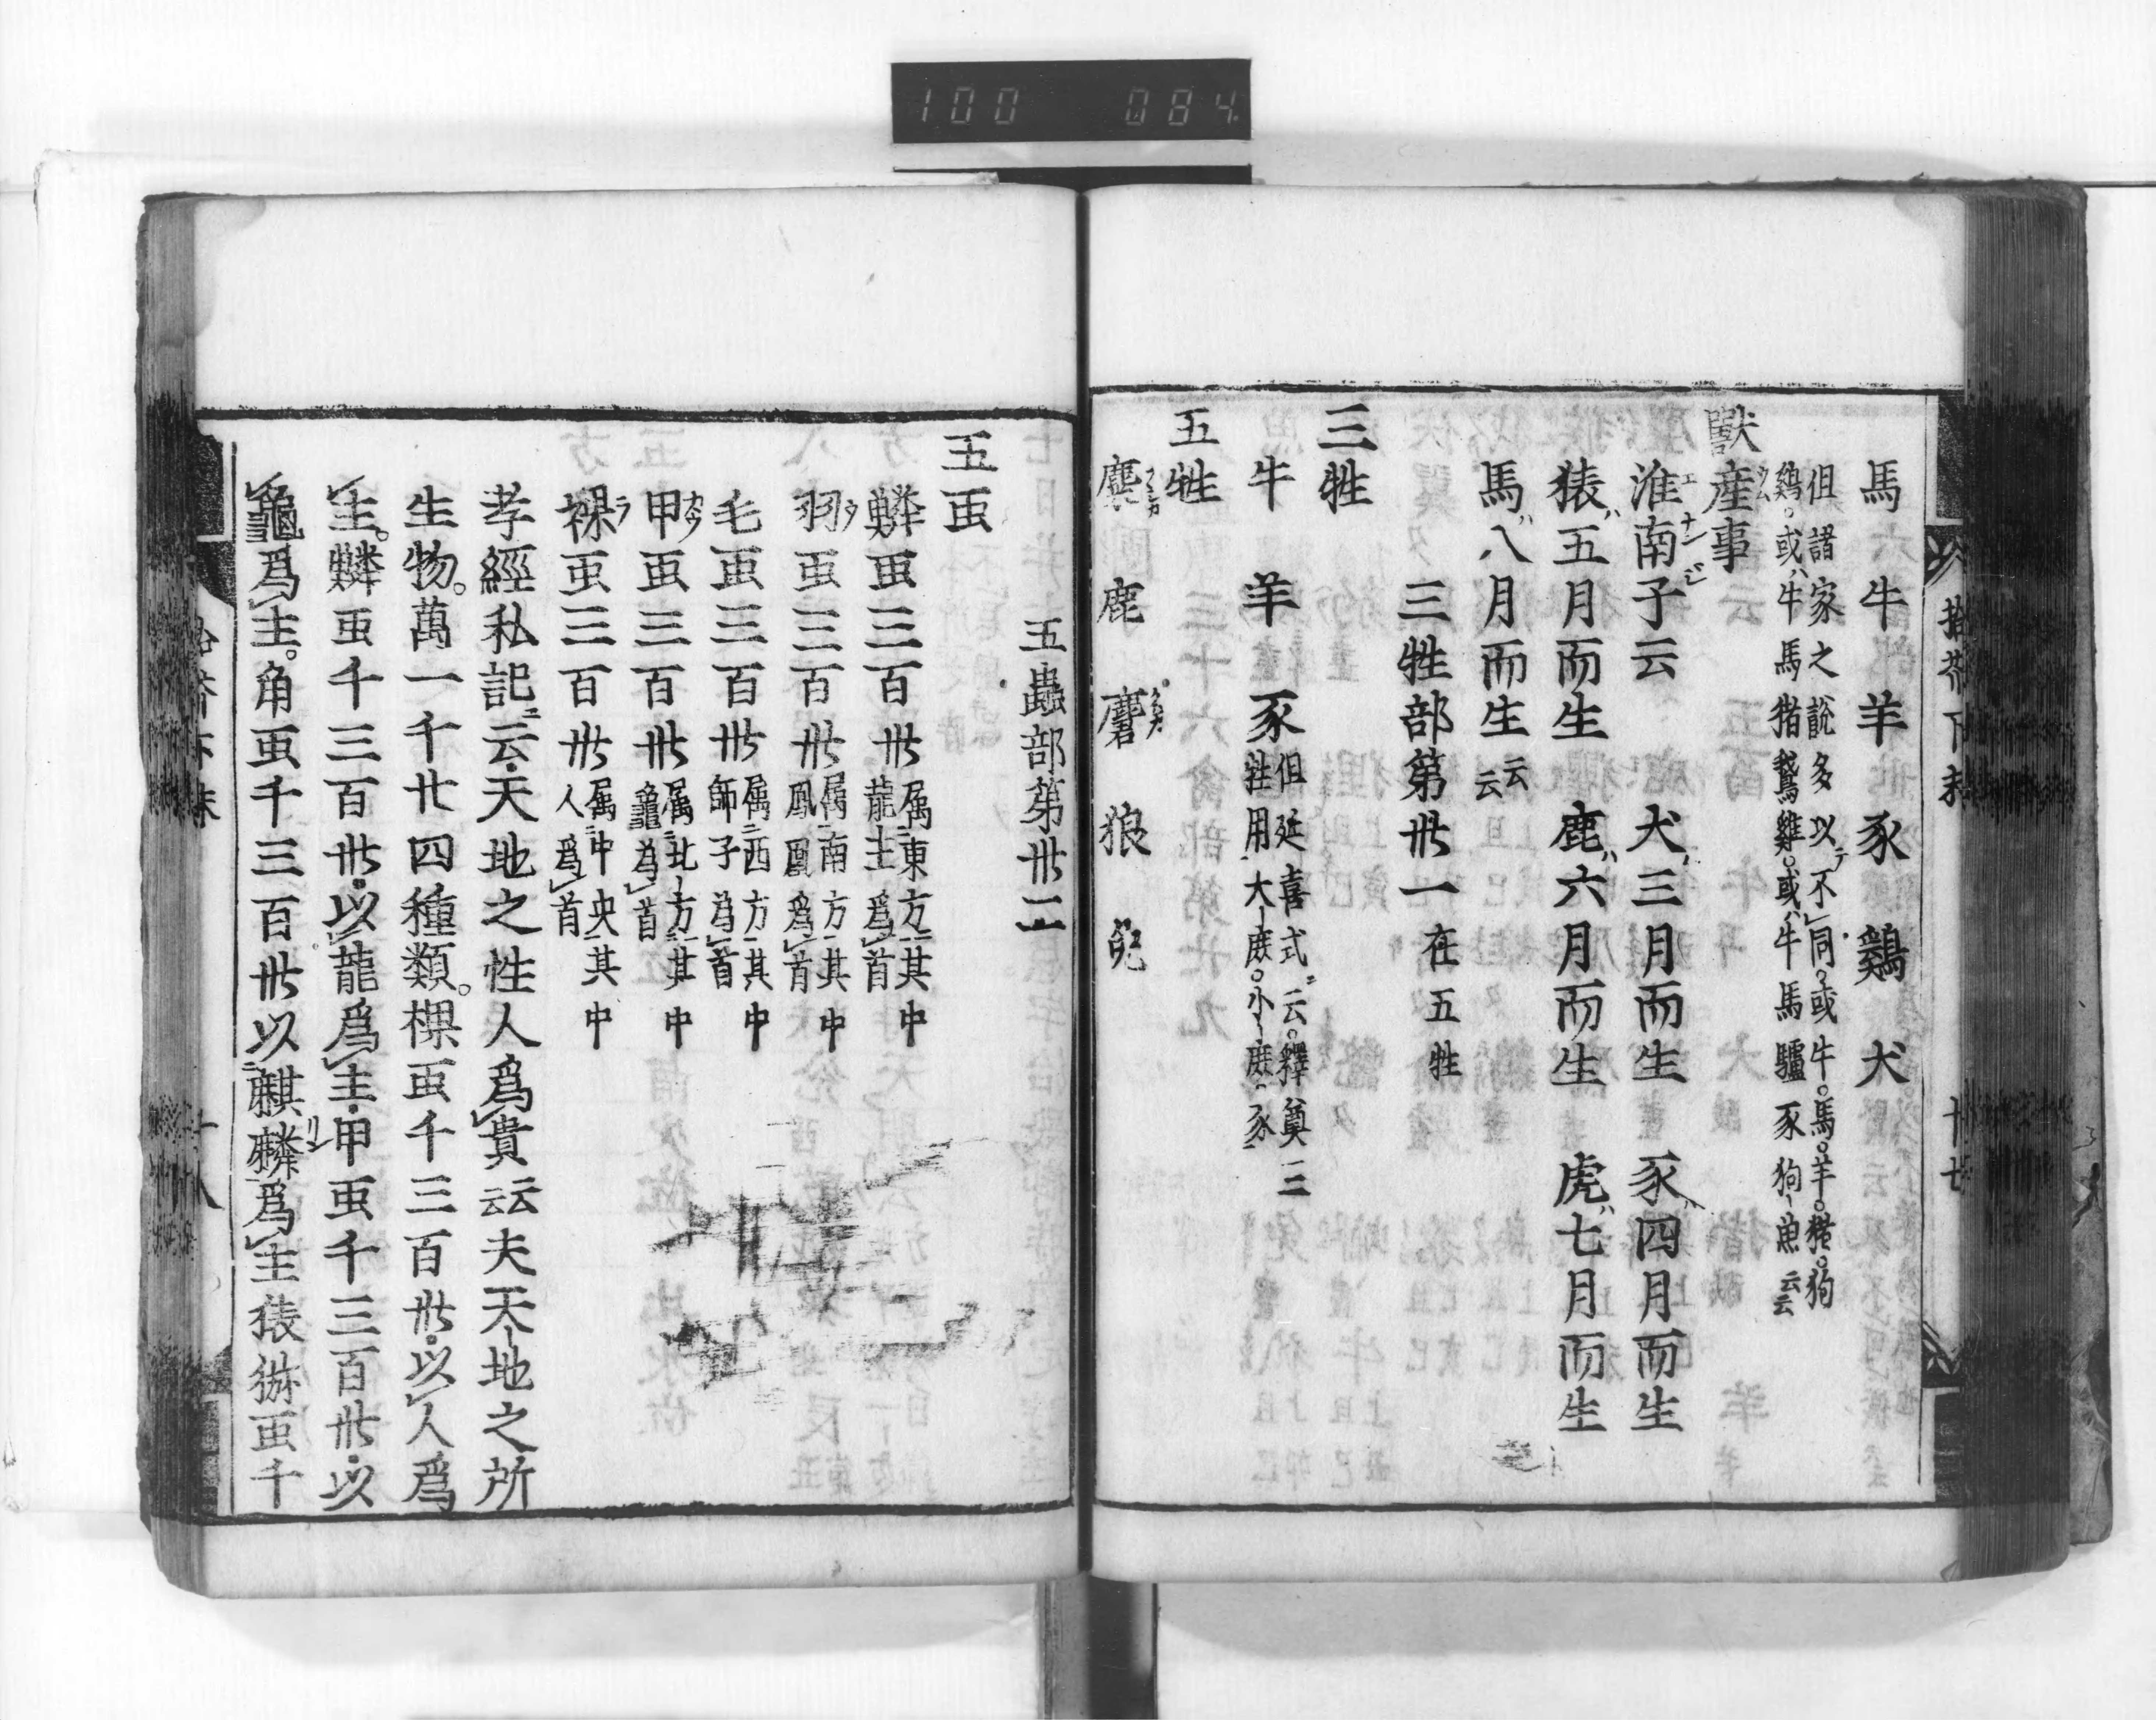 100 084
馬 牛 羊 豕 鷄 犬
但諸家之說多以不同或牛馬羊猪狗
鷄或牛馬猪鵞雞或牛馬驢豕狗魚云云
獸産事
淮南子云 犬三月而生 豕四月而生
猿五月而生 鹿六月而生 虎七月而生
馬八月而生云云
三牲部第卅一在五牲
三牲
牛 羊 豕但延喜式云釋奠三
牲用大鹿小鹿豕
五牲
麋 鹿 麏 狼
五蟲部第卅二
五䖝
鱗䖝三百卅属東方其中
龍主爲首
羽䖝三百卅属南方其中
鳳凰爲首
毛䖝三百卅属西方其中
師子為首
甲䖝三百卅属北方其中
龜為首
裸䖝三百卅属中央其中
人爲首
孝經私記云天地之性人爲貴云云夫天地之所
生物萬一千廿四種類倮䖝千三百卅以人爲
主鱗䖝千三百卅以龍爲主甲䖝千三百卅以
龜爲主角䖝千三百卅以麒麟爲主猿䖝千